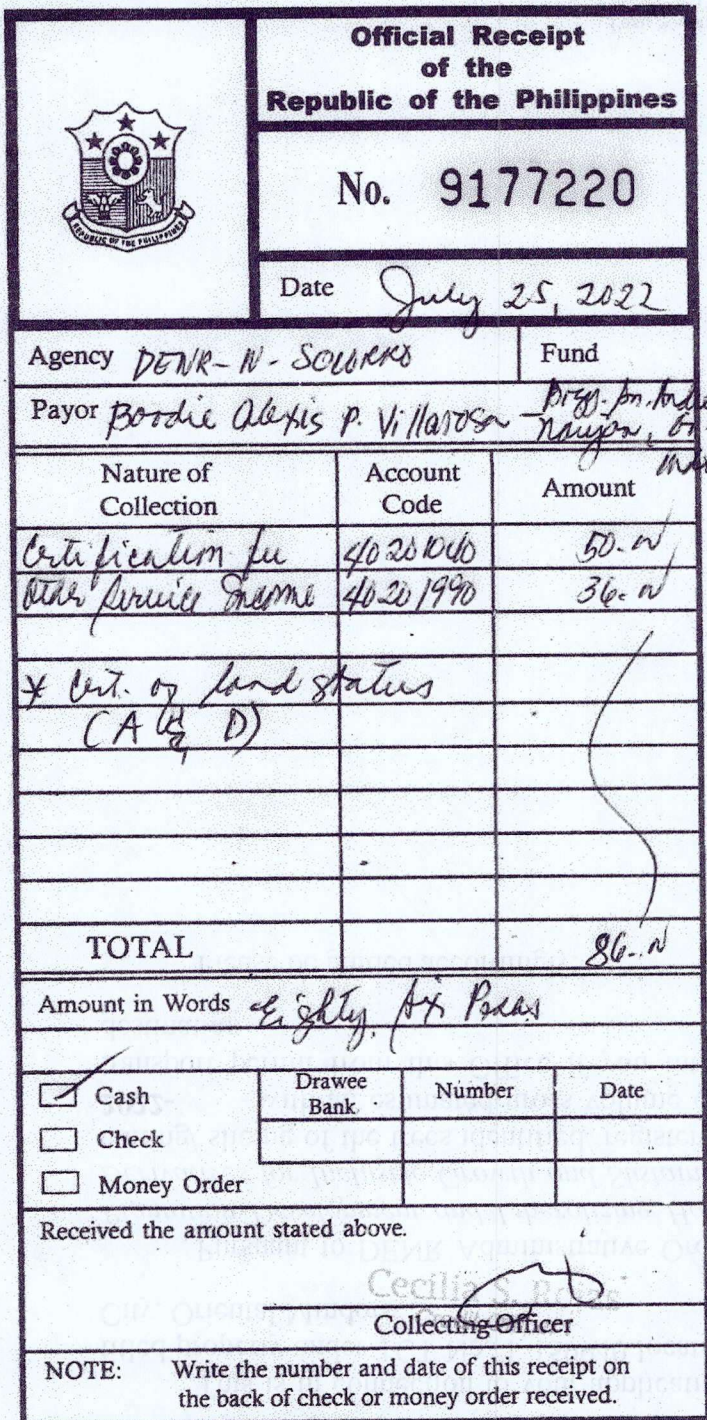 Official Receipt
of the
Republic of the Philippines
REPUBLIC OF THE PHILIPPINES
No. 9177220
Date July 25, 2022
Agency DENR-IV- SOCORRO Fund
Payor Boodie Alexis P. Villarosa - Brgy. Sn. Andres
Naujan, Or.
Nature of Collection Account Code Amount
Certification fee 40201040 50.-
Other Service Income 40201990 36.-
* Cert. of land status
(A & D)
TOTAL 86.-
Amount in Words Eighty Six Pesos
Cash Drawee Bank Number Date
Check
Money Order
Received the amount stated above.
Cecilia S. Rojas
Collecting Officer
NOTE: Write the number and date of this receipt on
the back of check or money order received.